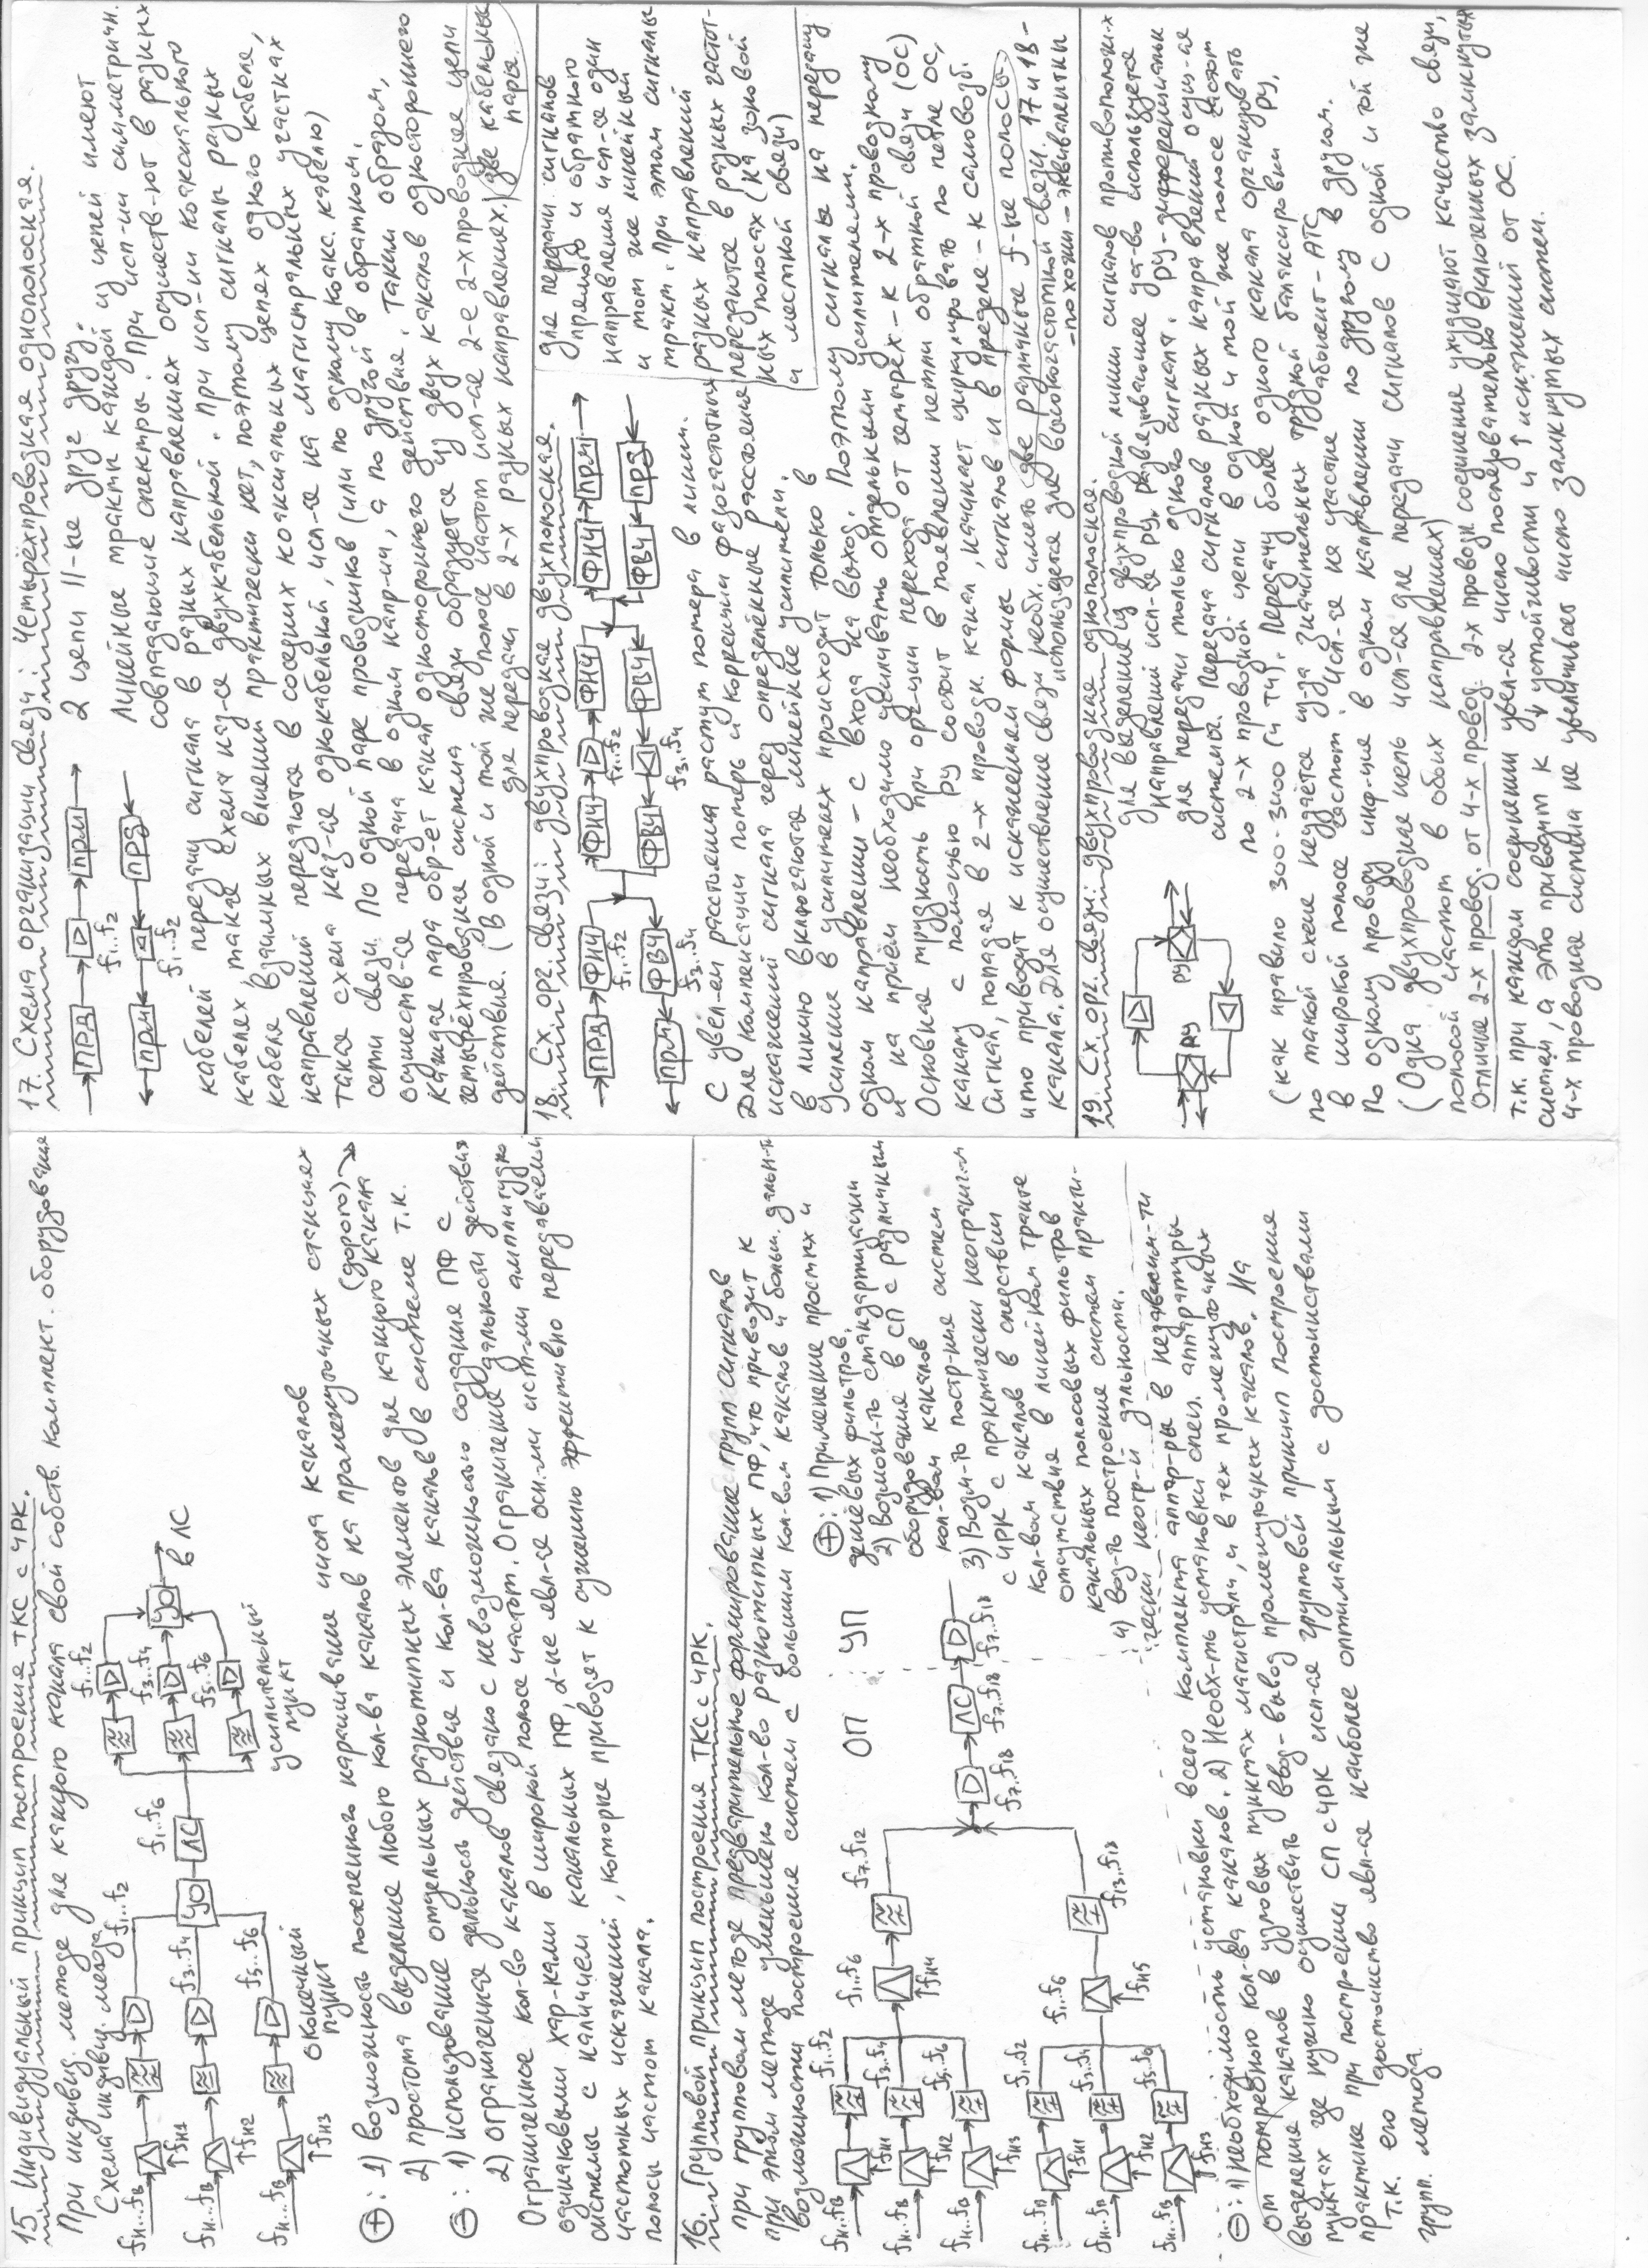 15. Индивидуальный принцип построения ТКС с ЧРК.
При индивид. методе для каждого канала свой собств. комплект. оборудования
Схема индивид. метода
fн..fв
fн1
fн..fв
fн2
fн..fв
fн3
f1..f2
f3..f4
f5..f6
УО
ЛС
f1..f6
f1..f2
f3..f4
f5..f6
УО
в ЛС
Оконечный
пункт
усилительный
пункт
⊕: 1) возможность постепенного наращивания числа каналов
2) простота выделения любого кол-ва каналов на промежуточных станциях
⊖: 1) использование отдельных разнотипных элементов для каждого канала (дорого)
2) ограниченная дальность действия и кол-ва каналов в системе т.к.
Ограниченное кол-во каналов связано с невозможностью создания ПФ с
одинаковыми хар-ками в широкой полосе частот. Ограничение дальности действия
системы с наличием канальных ПФ, α-ые явл-ся осн-ми ист-ми амплитудно
частотных искажений, которые приводят к сужению эффективно передаваемой
полосы частот канала.
16. Групповой принцип построения ТКС с ЧРК.
При групповом методе предварительное формирование групп сигналов
при этом методе уменьшено кол-во разнотипных ПФ, что приводит к
возможности построения систем с большим кол-вом каналов и больш. дальн-ти
fн..fв
fн1
f1..f2
fн..fв
fн2
f3..f4
fн..fв
fн3
f5..f6
f1..f6
fн4
f7..f12
fн..fв
fн1
f1..f2
fн..fв
fн2
f3..f4
fн..fв
fн3
f5..f6
f1..f6
fн5
f13..f18
f7..f18
ЛС
f7..f18
f7..f18
ОП
УП
⊕: 1) Применение простых и
дешёвых фильтров.
2) Возможн-ть стандартизации
оборудования в СП с различным
кол-вом каналов
3) Возм-ть постр-ния систем
с ЧРК с практически неогранич-м
кол-вом каналов в следствии
отсутствия в линейном тракте
канальных полосовых фильтров
4) воз-ть построение систем практи-
чески неогр-й дальности.
⊖: 1) Необходимость установки всего комплекта аппар-ры в независим-ти
от потребного кол-ва каналов. 2) Необх-ть установки спец. аппаратуры
выделения каналов в узловых пунктах магистрали, и в тех промежуточных
пунктах где нужно осуществить ввод-вывод промежуточных каналов. На
практике при построении СП с ЧРК исп-ся групповой принцип построения
т.к. его достоинство явл-ся наиболее оптимальным с достоинствами
групп. метода.
17. Схема организации связи: Четырёхпроводная однополосная.
ПРД
f1..f2
ПРМ
ПРМ
f1..f2
ПРД
2 цепи II-ые друг другу.
Линейные тракты каждой из цепей имеют
совпадающие спектры. При исп-ии симметричн.
кабелей передачу сигнала в разных направлениях осуществ-ют в разных
кабелях, такая схема наз-ся двухкабельной. При исп-ии коаксиального
кабеля взаимных влияний практически нет, поэтому сигналы разных
направлений передаются в соседних коаксиальных цепях одного кабеля,
такая схема наз-ся однокабельной, исп-ся на магистральных участках
сети связи. По одной паре проводников (или по одному коакс. кабелю)
осуществ-ся передача в одном напр-ии, а по другой в обратном.
каждая пара обр-ет канал одностороннего действия. Таким образом,
четырёхпроводная система связи образуется из двух каналов одностороннего
действия. (В одной и той же полосе частот исп-ся 2-е 2-х проводные цепи
для передачи в 2-х разных направлениях) две кабельные
пары.
18. Сх. орг. связи: двухпроводная двухполосная.
ПРД
ФНЧ
f1..f2
ФНЧ
f1..f2
ФНЧ
ФНЧ
ПРМ
ПРМ
ФВЧ
f3..f4
ФВЧ
f3..f4
ФВЧ
ФВЧ
ПРД
Для передачи сигналов
прямого и обратного
направления исп-ся один
и тот же линейный
тракт. При этом сигналы
разных направлений
передаются в разных частот-
ных полосах (на зоновой
и местной связи)
С увел-ем расстояния растут потери в линии.
Для компенсации потерь и коррекции фазочастотных
искажений сигнала через определённые расстояния
в линию включаются линейные усилители.
Усиление в усилителях происходит только в
одном направлении – с входа на выход. Поэтому сигналы на передачу
и на приём необходимо усиливать отдельными усилителями.
Основная трудность при орг-ции перехода от четырех – к 2-х проводному
каналу с помощью РУ состоит в появлении петли обратной связи (ОС)
Сигнал, попадая в 2-х проводн. канал, начинает циркулировать по петле ОС,
что приводит к искажениям формы сигналов и в пределе – к самовозб.
канала. Для осуществления связи необх. иметь две различные f-ые полосы.
используется для высокочастотной связи. 17 и 18 –
– похожи – эквивалентны
19. Сх. орг. связи: двухпроводная однополосная.
РУ
РУ
Для выделения из двухпроводной линии сигналов противоположн-х
направлений исп-ся РУ. развязывающее устр-во используется
для передачи только одного сигнала. РУ – дифференциальн
системы. Передача сигналов разных направлений осущ-ся
по 2-х проводной цепи в одной и той же полосе частот
(как правило 300-3400 Гц ТЧ). Передачу более одного канала организовать
по такой схеме неудаётся из-за значительных трудной балансировки РУ.
в широкой полосе частот. Исп-ся на участке абонент – АТС
По одному проводу инф-ия в одном направлении по другому в другом.
(Одна двухпроводная цепь исп-ся для передачи сигналов с одной и той же
полосой частот в обоих направлениях)
Отличие 2-х провод. от 4-х провод: 2-х проводн. соединение ухудшают качество связи,
т.к. при каждом соединении увел-ся число последовательно включенных замкнутых
систем, а это приводит к ↓ устойчивости и ↑ искажений от ОС.
4-х проводная система не увеличивает число замкнутых систем.